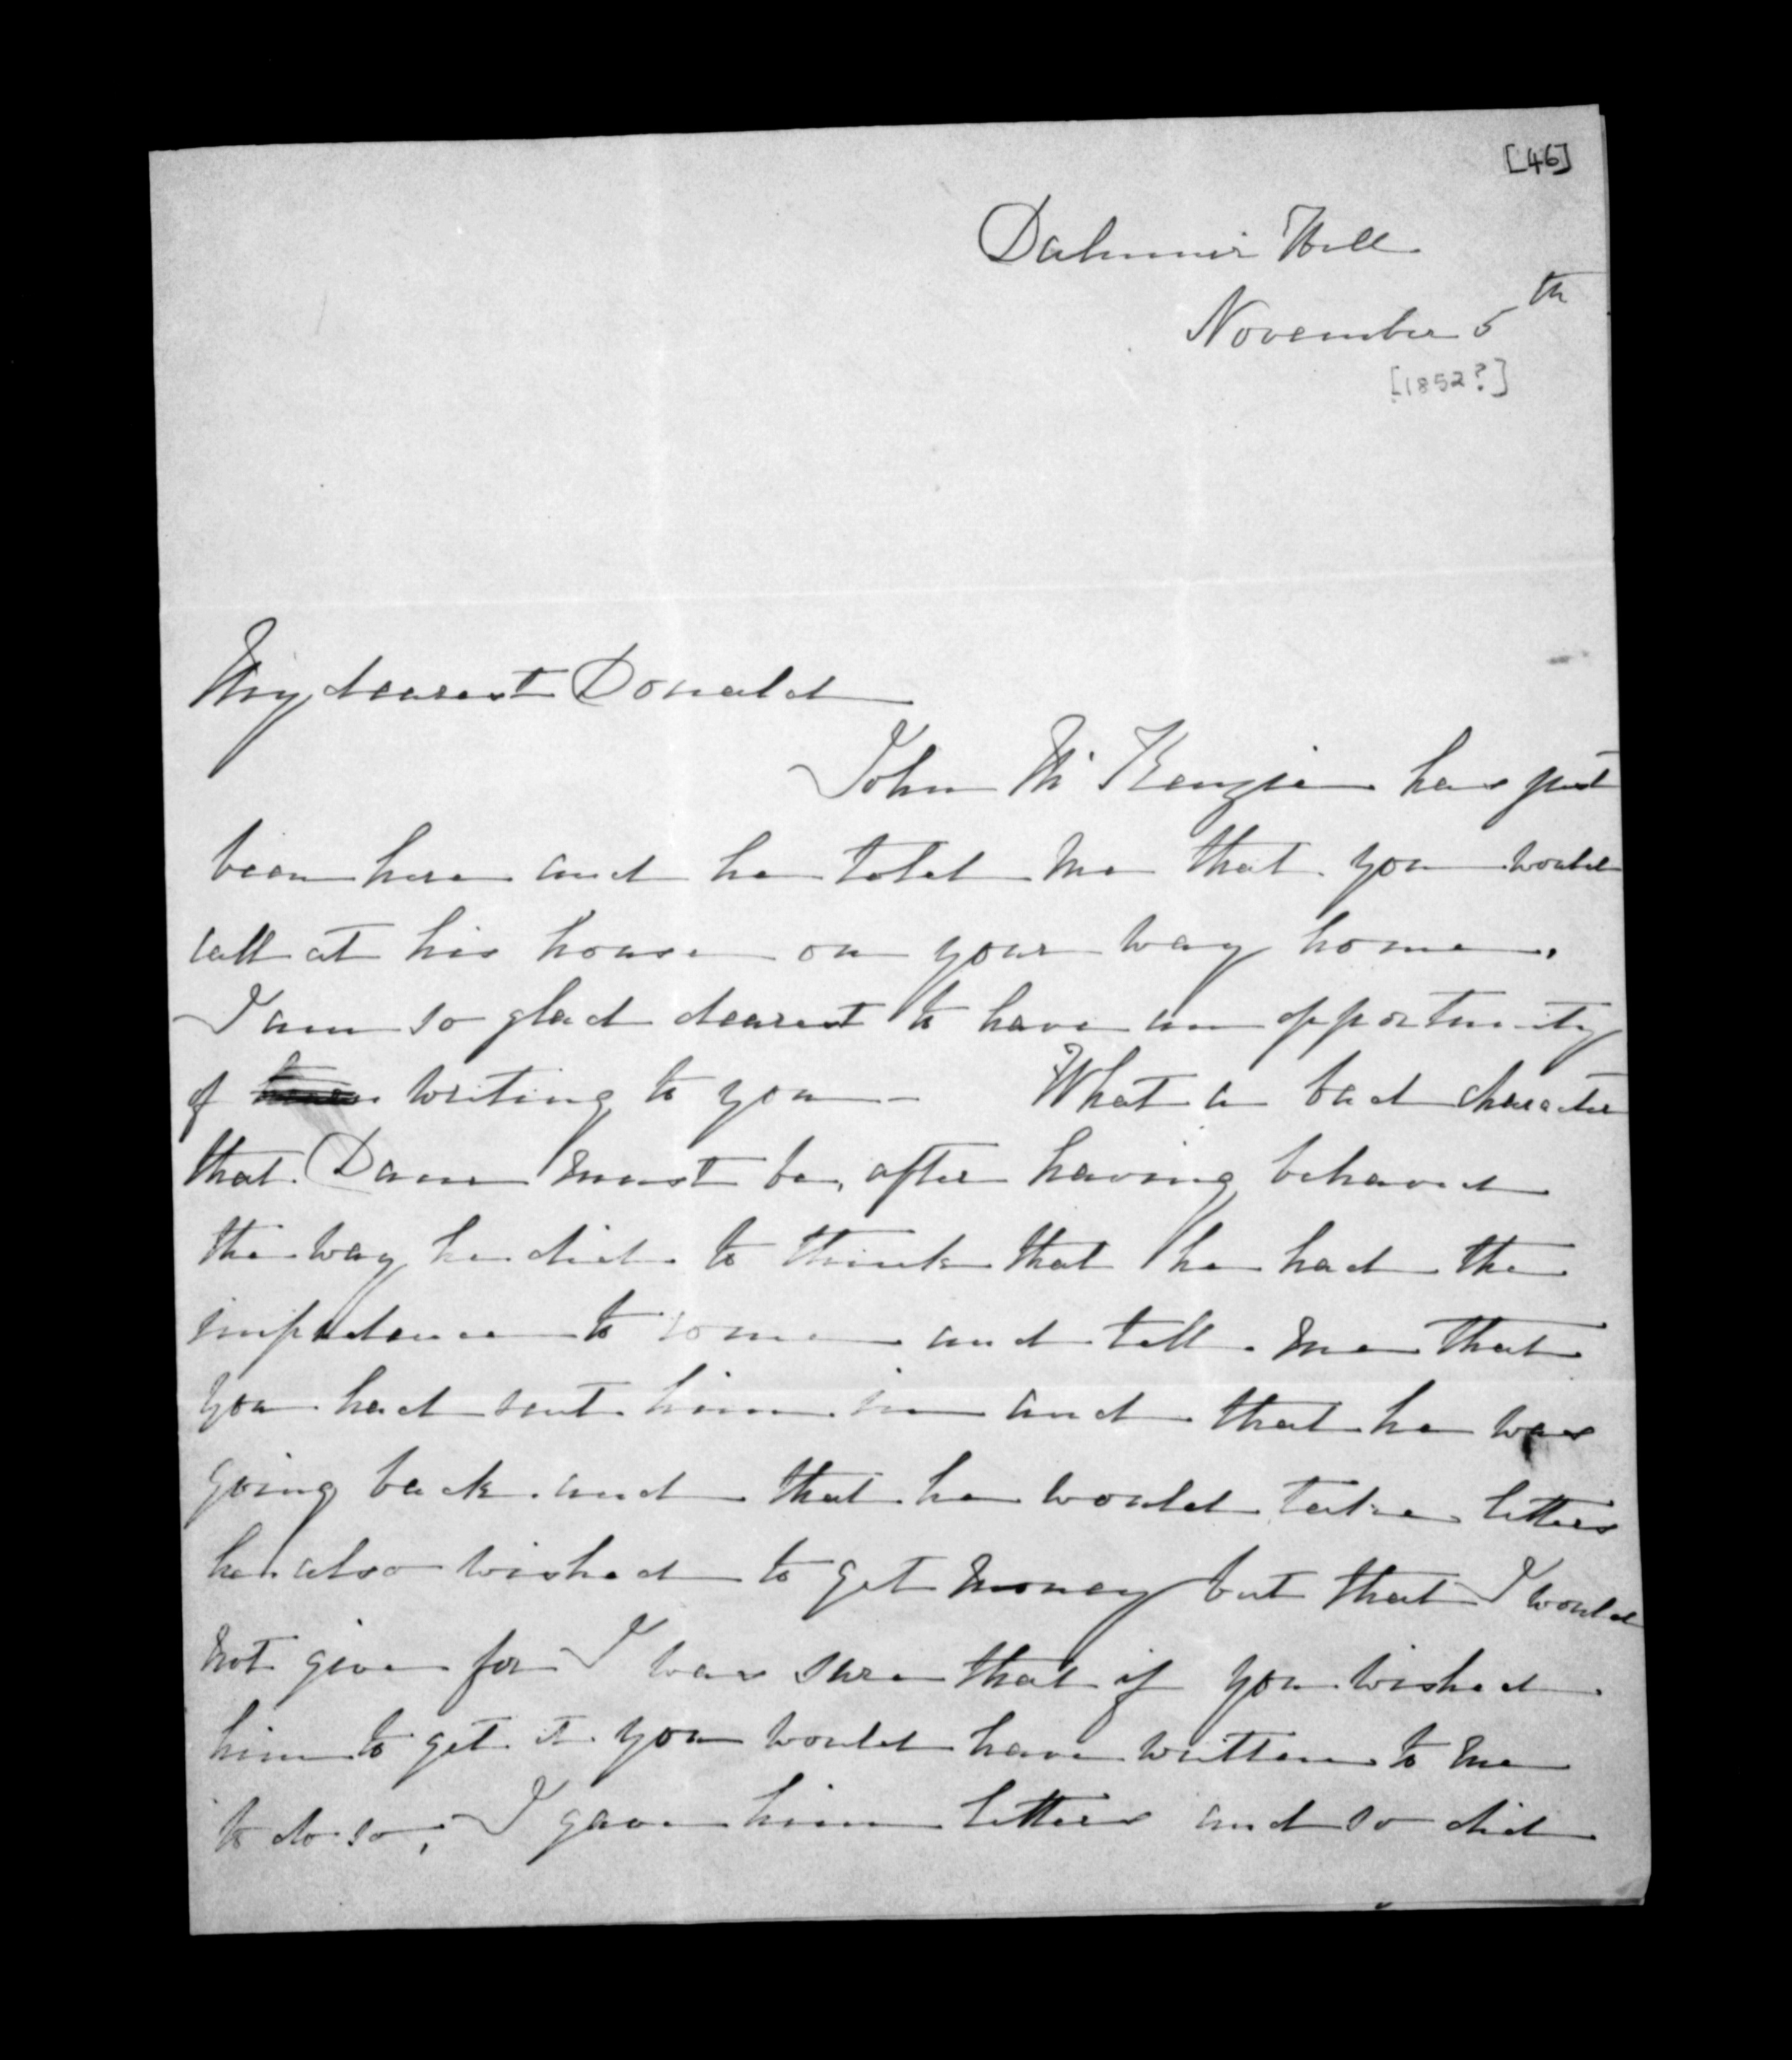 [46]
Dalmuir Hill
November 5th
[1852?]
My dearest Donald
John McKenzie has just
been here and he told me that you would
call at his house on your way home.
I am so glad dearest to have an opportunity
of writing to you - What a bad character
that Dam must be, after having behaved
the way he did to think that he had the
impudence to come and tell me that
you had sent him in and that he was
going back and that he would take letters
he also wished to get money but that I would
not give for I was sure that if you wished
him to get it you would have written to me
to do so; I gave him letters and so did